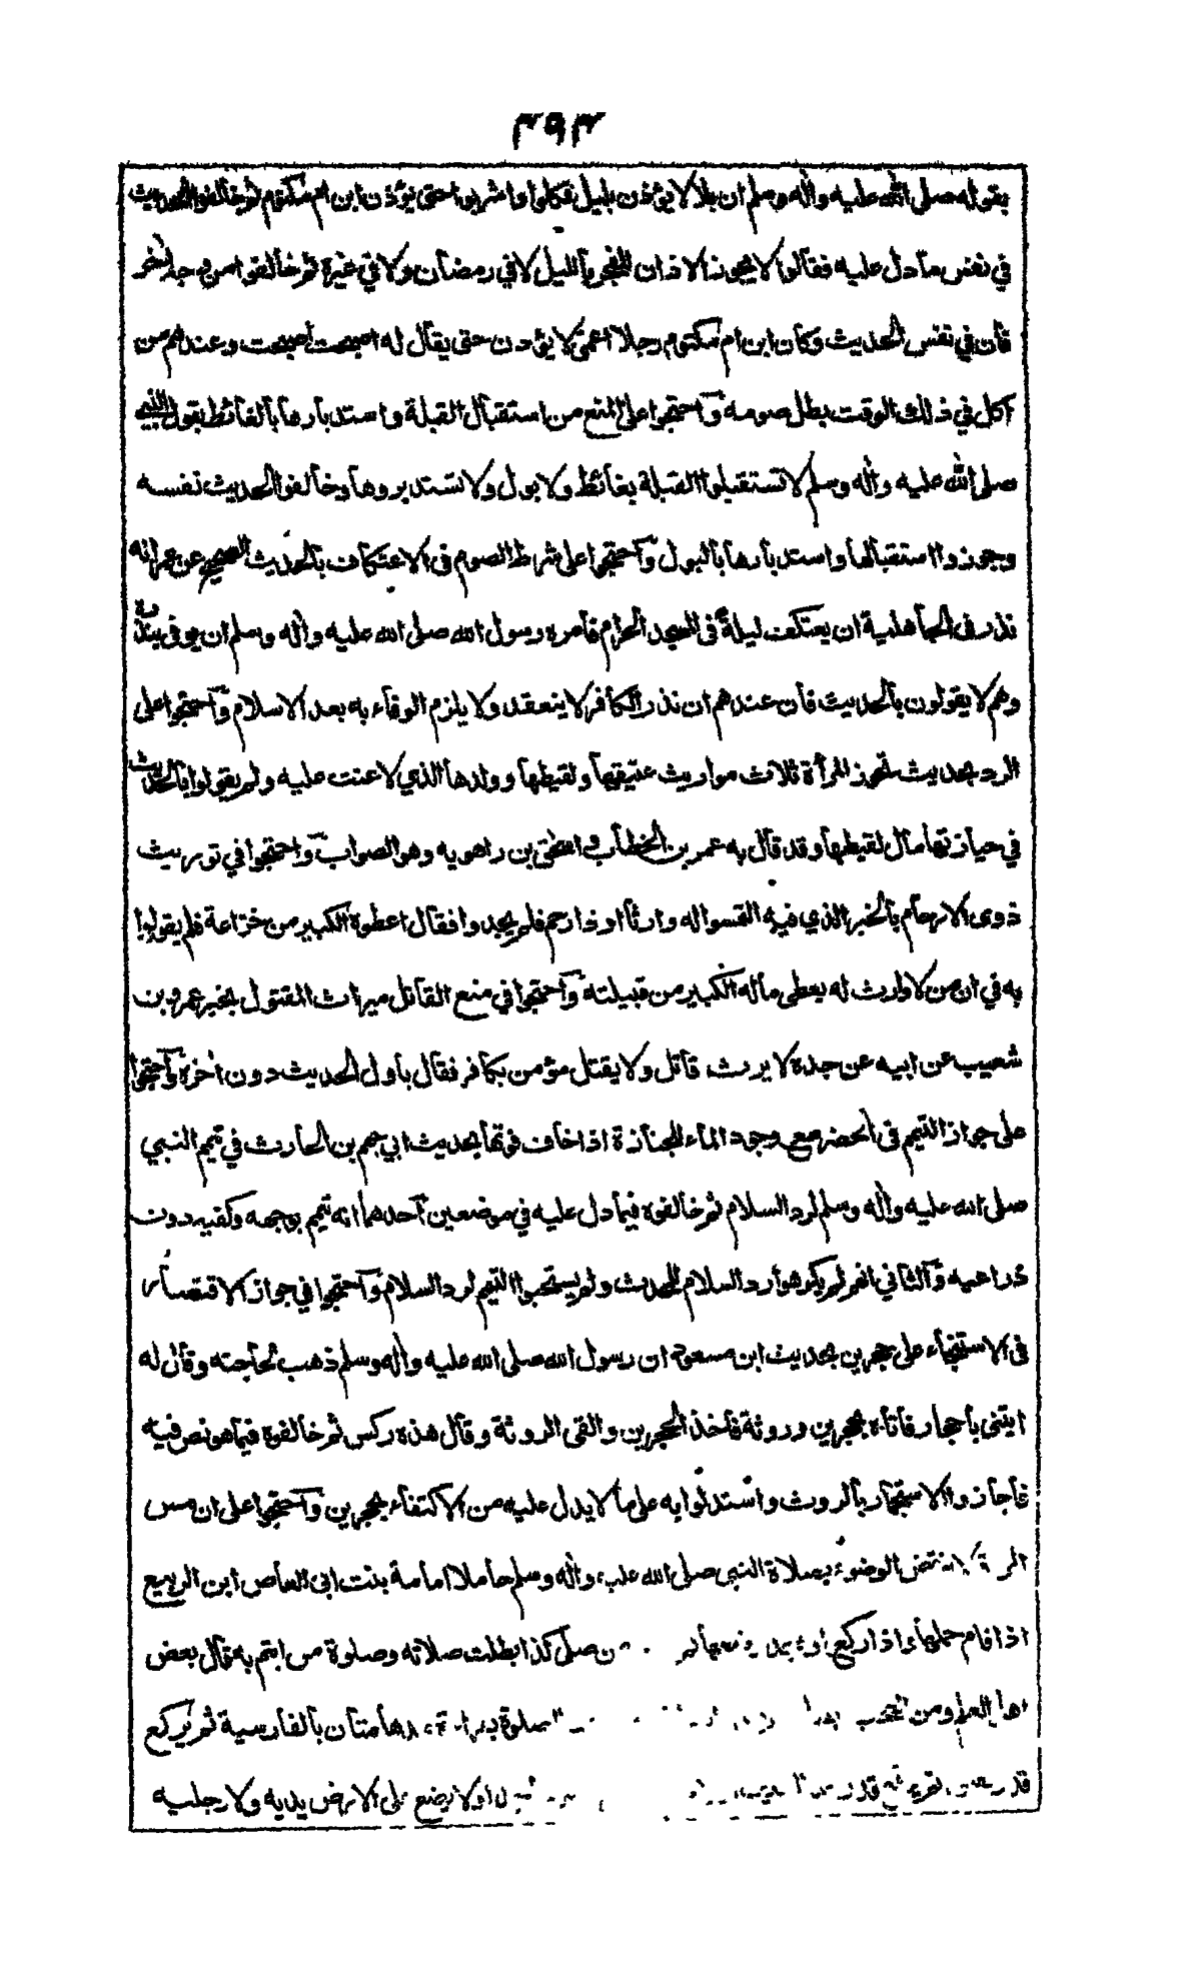 ٣٩٣
بقوله صلى الله عليه واله وسلم ان بلالا يؤذن بليل فكلوا واشربوا حتى يؤذن ابن ام مكتوم ثم خالفوا الحديث
في نفس ما دل عليه فقالوا لا يجوز الاذان للفجر بالليل لا في رمضان ولا في غيره ثم خالفوا من وجه اخر
فان في نفس الحديث وكان ابن ام مكتوم رجلا اعمى لا يؤذن حتى يقال له اصبحت اصبحت وعندهم من
اكل في ذلك الوقت بطل صومه واحتجوا على المنع من استقبال القبلة واستدبارها بالغائط بقول النبي
صلى الله عليه واله وسلم لا تستقبلوا القبلة بغائط ولا بول ولا تستدبروها وخالفوا الحديث نفسه
وجوزوا استقبالها واستدبارها بالبول واحتجوا على شرط الصوم فى الاعتكاف بالحديث الصحيح عن عمر انه
نذر فى الجاهلية ان يعتكف ليلة فى المسجد الحرام فامره رسول الله صلى الله عليه واله وسلم ان يوفى بنذره
وهم لا يقولون بالحديث فان عندهم ان نذر الكافر لا ينعقد ولا يلزم الوفاء به بعد الاسلام واحتجوا على
الرد بحديث تحوز المرأة ثلاث مواريث عتيقها ولقيطها وولدها الذي لاعنت عليه ولم يقولوا بالحديث
في حيازتها مال لقيطها وقد قال به عمر بن الخطاب واسحق بن راهويه وهو الصواب واحتجوا في توريث
ذوى الارحام بالخبر الذي فيه التمسوا له وارثا او ذا رحم فلم يجدوا فقال اعطوه الكبير من خزاعة فلم يقولوا
به في ان من لا وارث له يعطى ماله الكبير من قبيلته واحتجوا في منع القاتل ميراث المقتول بخبر عمرو بن
شعيب عن ابيه عن جده لا يرث قاتل ولا يقتل مؤمن بكافر فقال باول الحديث دون اخره واحتجوا
على جواز التيمم فى الحضر مع وجود الماء للجنازة اذا خاف فوتها بحديث ابي جهم بن الحارث في تيمم النبي
صلى الله عليه واله وسلم لرد السلام ثم خالفوه فيما دل عليه في موضعين احدهما انه تيمم بوجهه وكفيه دون
ذراعيه والثاني انهم لم يكرهوا رد السلام للحدث ولم يستحبوا التيمم لرد السلام واحتجوا في جواز الاقتصار
فى الاستنجاء على حجرين بحديث ابن مسعود ان رسول الله صلى الله عليه واله وسلم ذهب لحاجته وقال له
ايتنى باحجار فاتاه بحجرين وروثة فاخذ الحجرين والقى الروثة وقال هذه ركس ثم خالفوه فيما هو نص فيه
فاجازوا الاستجمار بالروث واستدلوا به على ما لا يدل عليه من الاكتفاء بحجرين واحتجوا على ان مس
المرأة لا ينقض الوضوء بصلاة النبي صلى الله عليه واله وسلم حاملا امامة بنت ابى العاص ابن الربيع
اذا قام حملها واذا ركع او سجد وضعها ثم من صلى كذا بطلت صلاته وصلوة من ائتم به قال بعض
اهل العلم ومن العجب صلوة مدهامتان بالفارسية ثم يركع
قدر قدر او لا يضع على الارض يديه ولا رجليه